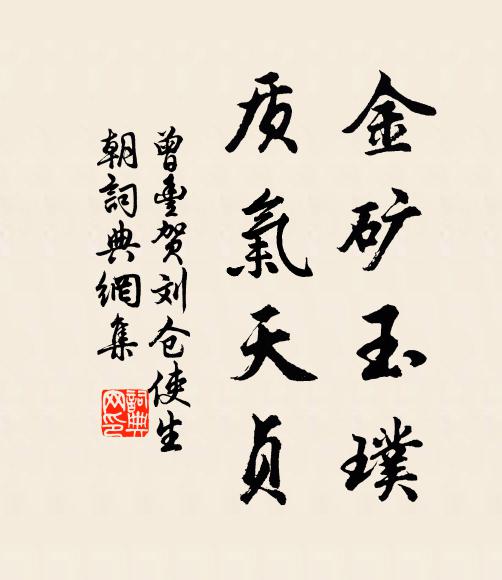 金矿玉璞
质氣天贞
曾豊贺刘仓使生
朝詞典網集
詞典网印